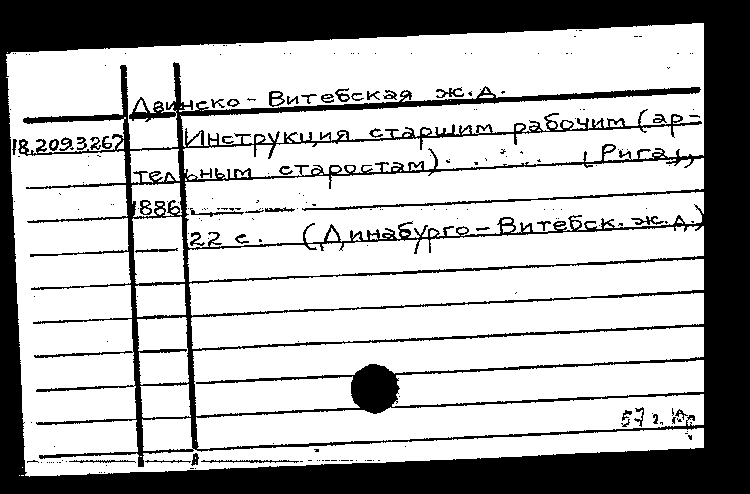 Двинско-Витебская ж.д.
18.209.3267 Инструкция старшим рабочим (ар=
тельным старостам). . . . . (Рига),
1886. —
22 с. (Динабурго-Витебск. ж.д.)
57 г.